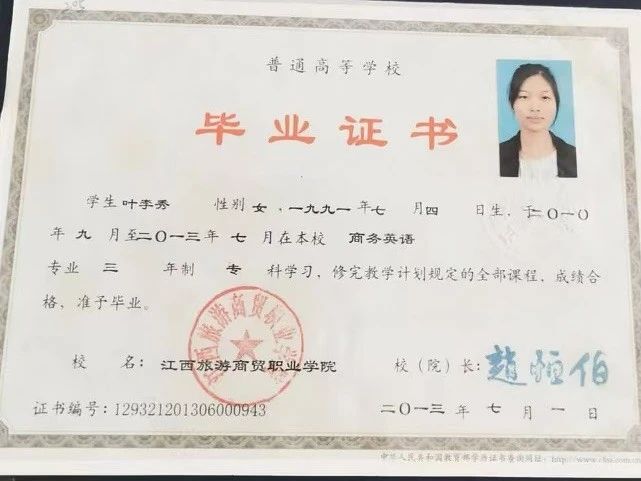 205
普通高等学校
毕业证书
学生 叶李秀 性别 女，一九九一年 七 月 四 日生，于二〇一〇
年 九 月至二〇一三年 七 月在本校 商务英语
专业 三 年制 专 科学习，修完教学计划规定的全部课程，成绩合
格，准予毕业。
江西旅游商贸职业学院
校 名： 江西旅游商贸职业学院 校（院）长： 趙恒伯
证书编号：129321201306000943 二〇一三 年 七 月 一 日
中华人民共和国教育部学历证书查询网址：http://www.chsi.com.cn